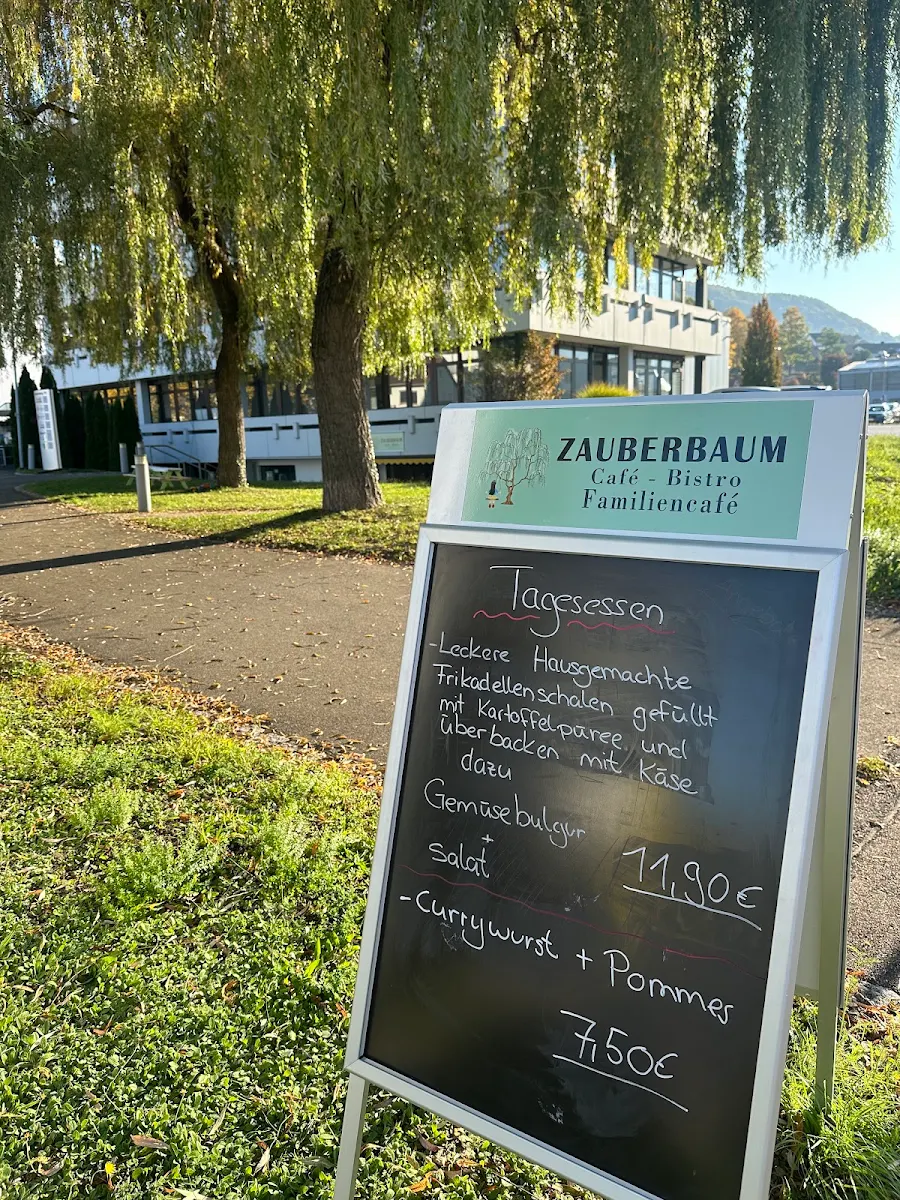 ZAUBERBAUM
Café - Bistro
Familiencafé
Tagesessen
-Leckere Hausgemachte
Frikadellenschalen gefüllt
mit Kartoffelpüree und
überbacken mit Käse
dazu
Gemüsebulgur
+
Salat
11,90€
-Currywurst + Pommes
7,50€